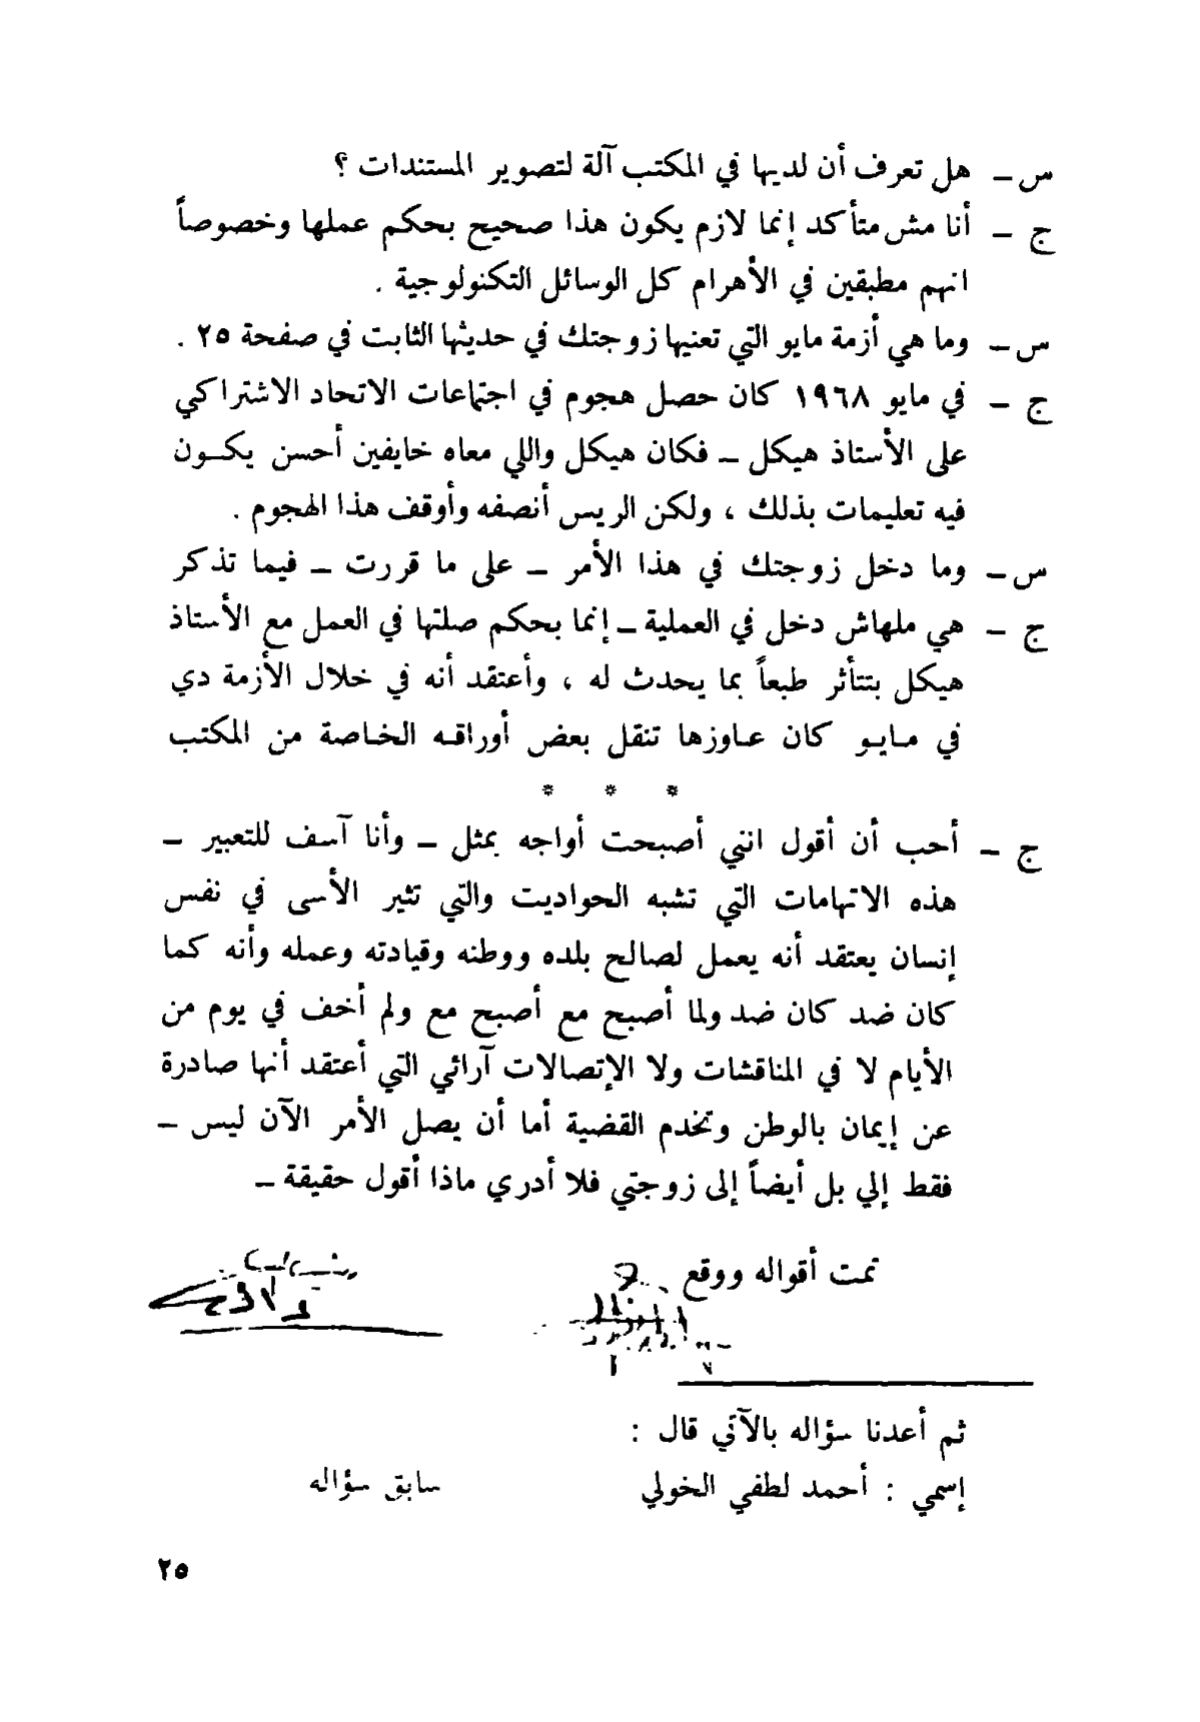 س – هل تعرف أن لديها في المكتب آلة لتصوير المستندات ؟
ج – أنا مش متأكد إنما لازم يكون هذا صحيح بحكم عملها وخصوصاً
انهم مطبقين في الأهرام كل الوسائل التكنولوجية .
س – وما هي أزمة مايو التي تعنيها زوجتك في حديثها الثابت في صفحة ٢٥ .
ج – في مايو ١٩٦٨ كان حصل هجوم في اجتماعات الاتحاد الاشتراكي
على الأستاذ هيكل – فكان هيكل واللي معاه خايفين أحسن يكــون
فيه تعليمات بذلك ، ولكن الريس أنصفه وأوقف هذا الهجوم .
س – وما دخل زوجتك في هذا الأمر – على ما قررت – فيما تذكر
ج – هي ملهاش دخل في العملية – إنما بحكم صلتها في العمل مع الأستاذ
هيكل بتتأثر طبعاً بما يحدث له ، وأعتقد أنه في خلال الأزمة دي
في مـايـو كان عـاوزها تنقل بعض أوراقـه الخـاصة من المكتب
* * *
ج – أحب أن أقول انني أصبحت أواجه بمثل – وأنا آسف للتعبير –
هذه الاتهامات التي تشبه الحواديت والتي تثير الأسى في نفس
إنسان يعتقد أنه يعمل لصالح بلده ووطنه وقيادته وعمله وأنه كما
كان ضد كان ضد ولما أصبح مع أصبح مع ولم أخف في يوم من
الأيام لا في المناقشات ولا الإتصالات آرائي التي أعتقد أنها صادرة
عن إيمان بالوطن وتخدم القضية أما أن يصل الأمر الآن ليس –
فقط إلي بل أيضاً إلى زوجتي فلا أدري ماذا أقول حقيقة –
تمت أقواله ووقع
ثم أعدنا سؤاله بالآتي قال :
إسمي : أحمد لطفي الخولي سابق سؤاله
٢٥